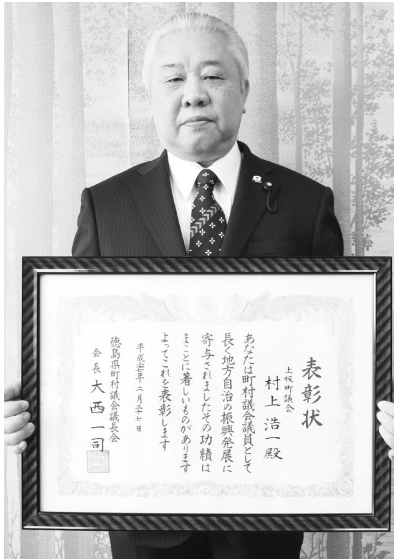 表彰状
上板町議会
村上浩一殿
あなたは町村議会議員として
長く地方自治の振興発展に
寄与されましたその功績は
まことに著しいものがあります
よってこれを表彰します
平成二十五年二月二十七日
徳島県町村議会議長会
会長 大西一司